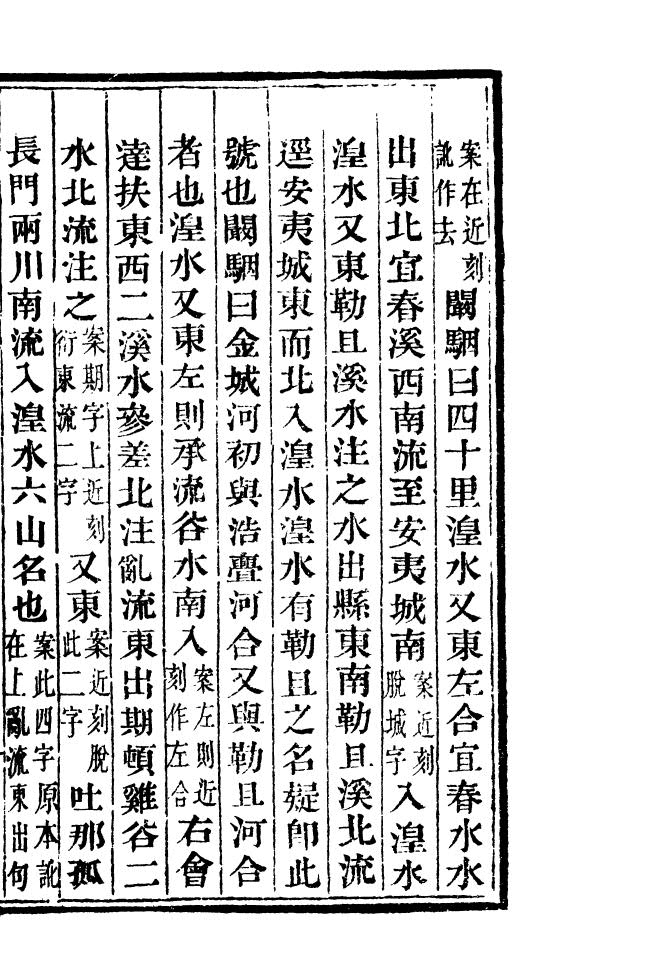 案在近刻訛作去闞駰曰四十里湟水又東左合宜春水水
出東北宜春溪西南流至安夷城南案近刻脫城字入湟水
湟水又東勒且溪水注之水出縣東南勒且溪北流
逕安夷城東而北入湟水湟水有勒且之名疑卽此
號也闞駰曰金城河初與浩亹河合又與勒且河合
者也湟水又東左則承流谷水南入案左則近刻作左合右會
達扶東西二溪水參差北注亂流東出期頓雞谷二
水北流注之案期字上近刻衍東流二字又東案近刻脫此二字吐那孤
長門兩川南流入湟水六山名也案此四字原本訛在上亂流東出句